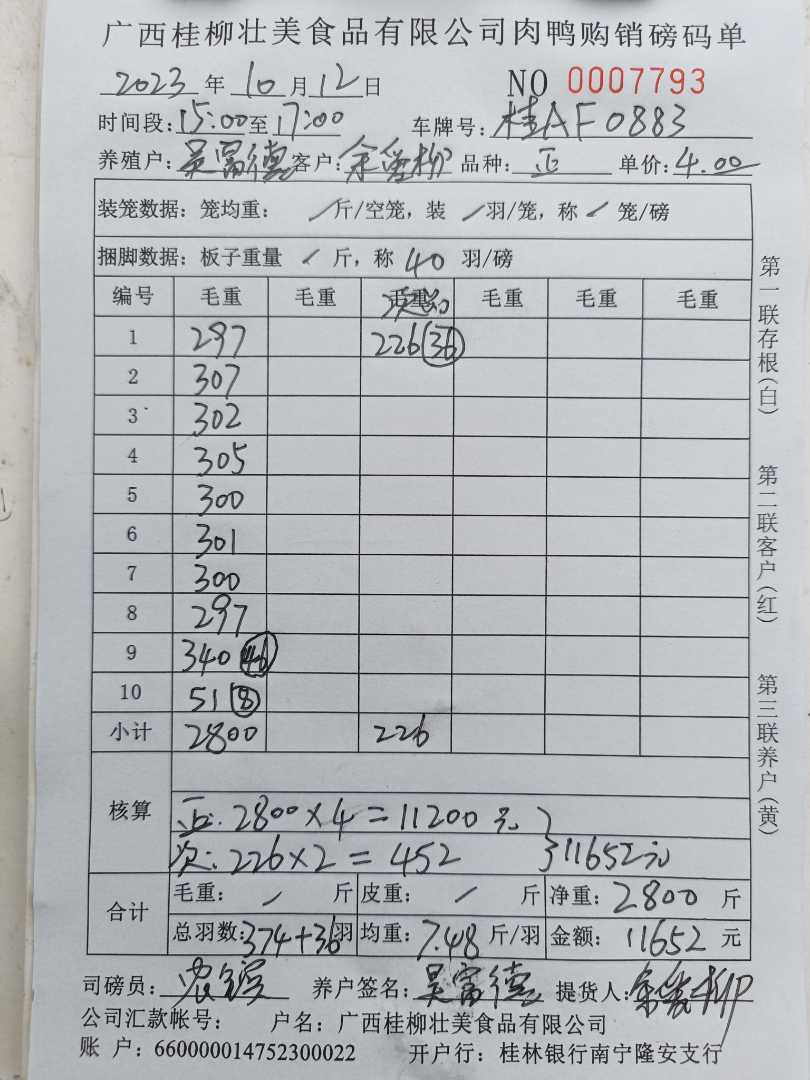 广西桂柳壮美食品有限公司肉鸭购销磅码单
2023 年 10 月 12 日 NO 0007793
时间段: 15:00 至 17:00 车牌号: 桂AF0883
养殖户: 吴富德 客户: 余 柳 品种: 正 单价: 4.00
装笼数据: 笼均重: / 斤/空笼, 装 / 羽/笼, 称 / 笼/磅
捆脚数据: 板子重量 / 斤, 称 40 羽/磅
编号 毛重 毛重 毛重 毛重 毛重 毛重
1 297 226 (36)
2 307
3 302
4 305
5 300
6 301
7 300
8 297
9 340 (46)
10 51 (8)
小计 2800 226
核算
正: 2800×4=11200元
次: 226×2=452 } 11652元
合计 毛重: / 斤 皮重: / 斤 净重: 2800 斤
总羽数: 374+36 羽 均重: 7.48 斤/羽 金额: 11652 元
司磅员: 农 养户签名: 吴富德 提货人: 余 柳
公司汇款帐号: 户名: 广西桂柳壮美食品有限公司
账 户: 660000014752300022 开户行: 桂林银行南宁隆安支行
第一联存根(白)
第二联客户(红)
第三联养户(黄)